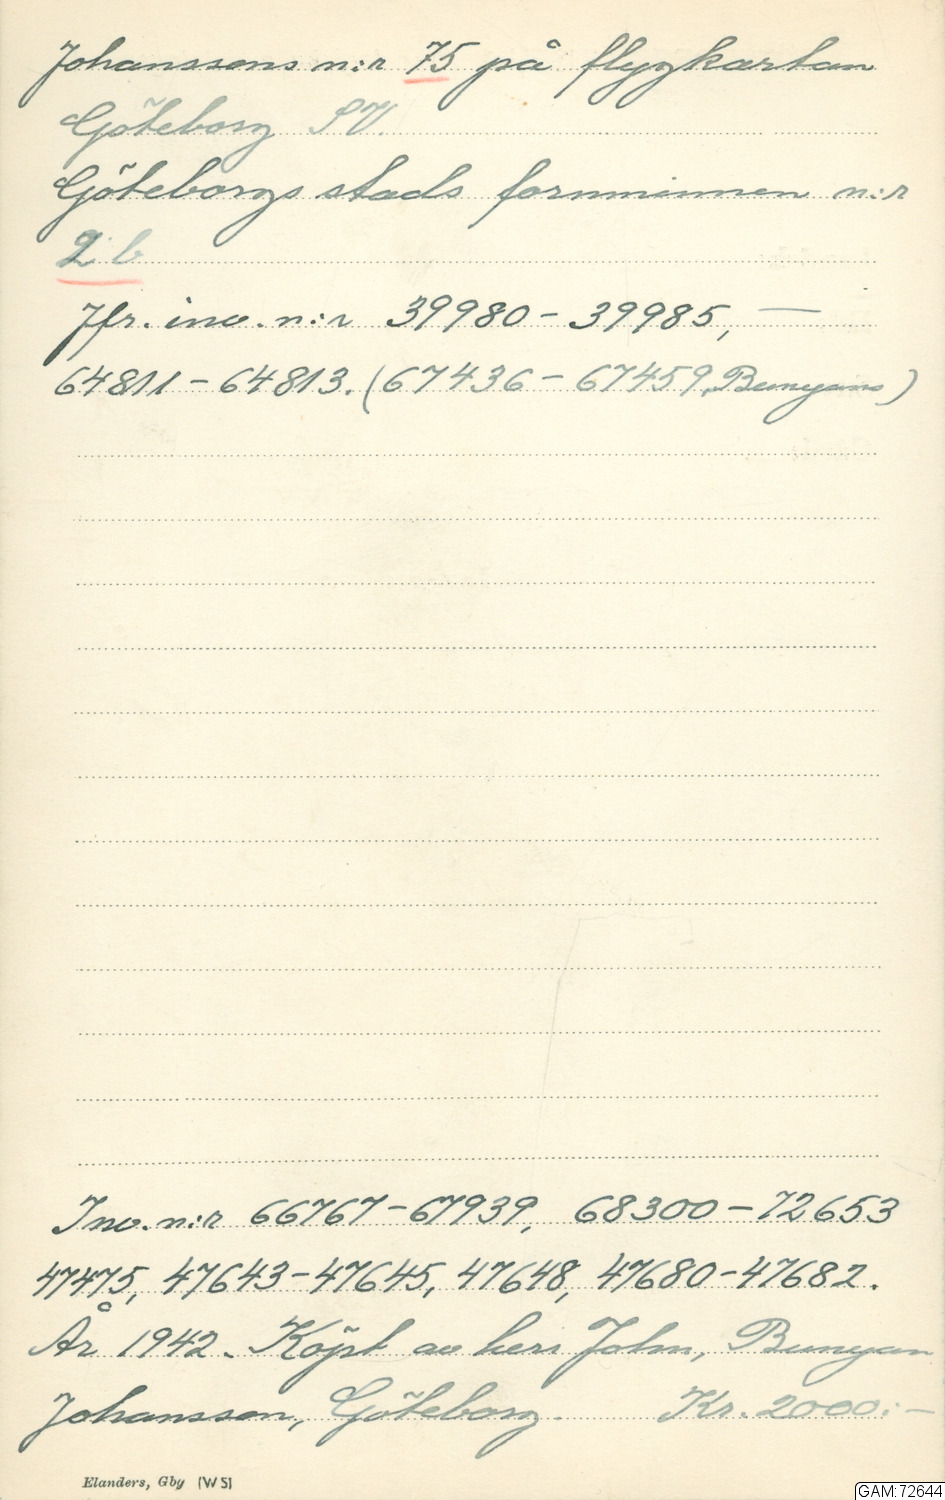 Johanssons n:r 75 på flygkartan
Göteborg SV.
Göteborgs stads fornminnen n:r
2 b
Jfr. inv. n:r 39980 - 39985, —
64811 - 64813. (67436 - 67459, Bunyans)
Inv. n:r 66767 - 67939, 68300 - 72653
47475, 47643 - 47645, 47648, 47680 - 47682.
År 1942. Köpt av herr John, Bunyan
Johansson, Göteborg. Kr. 2000:-
Elanders, Gby (W5)
GAM:72644